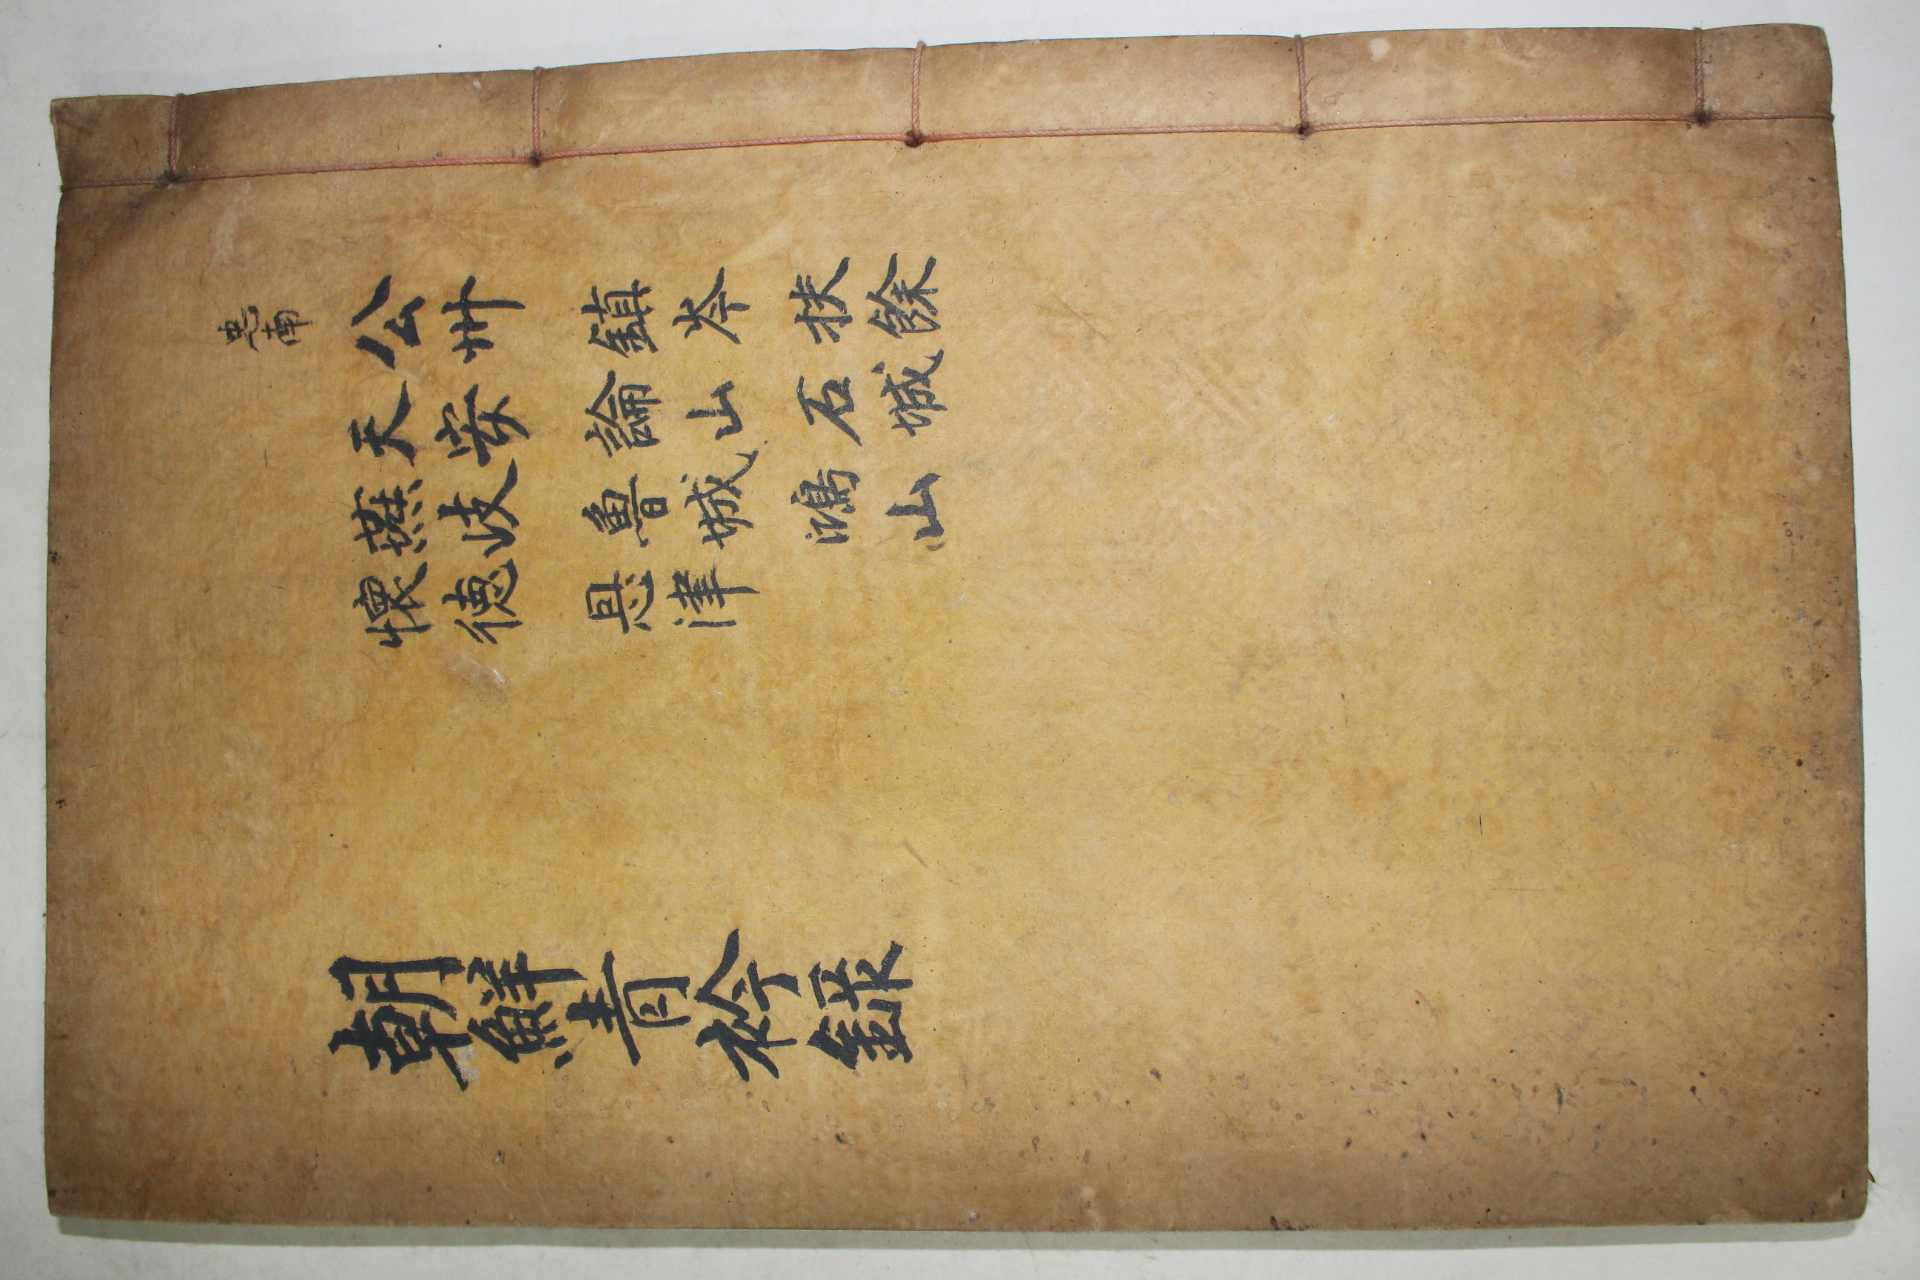 忠南
公州 鎮岑 扶餘
天安 論山 石城
燕岐 魯城 鴻山
懷德 恩津
朝鮮青衿録